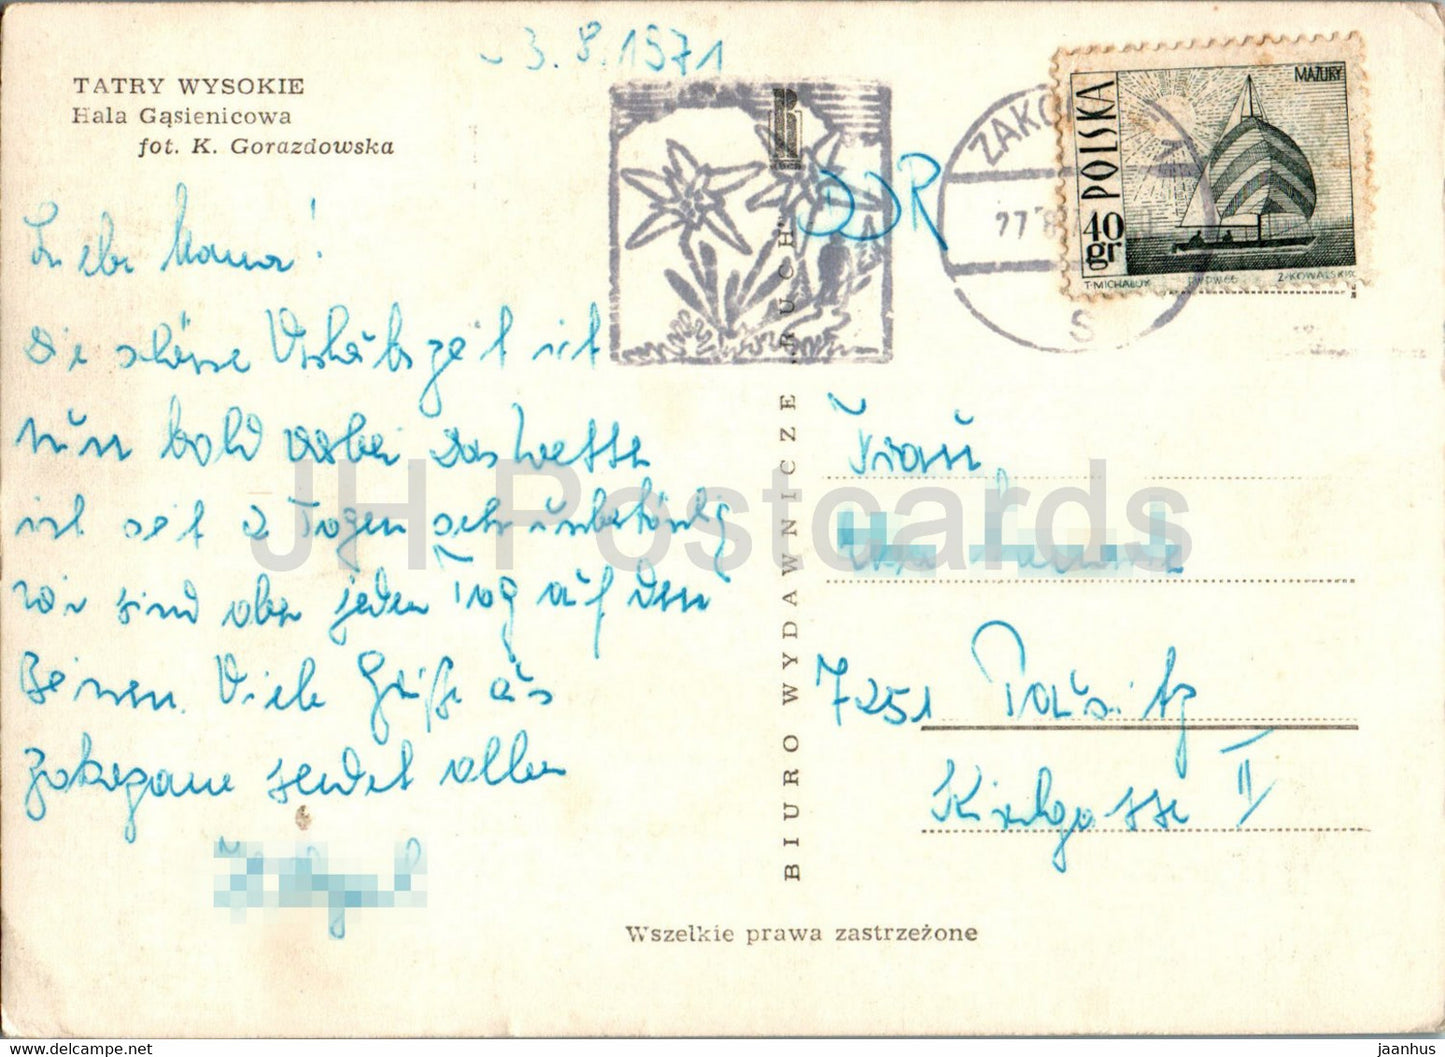 - 3. 8. 1971
TATRY WYSOKIE
Hala Gąsienicowa
fot. K. Gorazdowska
Liebe Mama!
Die schöne Urlaubszeit ist
nun bald vorbei das Wetter
ist seit 2 Tagen sehr unbeständig
wir sind aber jeden Tag auf den
Beinen. Viele Grüße aus
Zakopane sendet allen
BIURO WYDAWNICZE „RUCH”
DDR
S
POLSKA
MAZURY
40
gr
T. MICHALUK PWPW 66 Z. KOWALSKI
Frau
7251 Pausitz
Kirchgasse II
Wszelkie prawa zastrzeżone
JH Postcards
jaanhus
https://www.delcampe.net